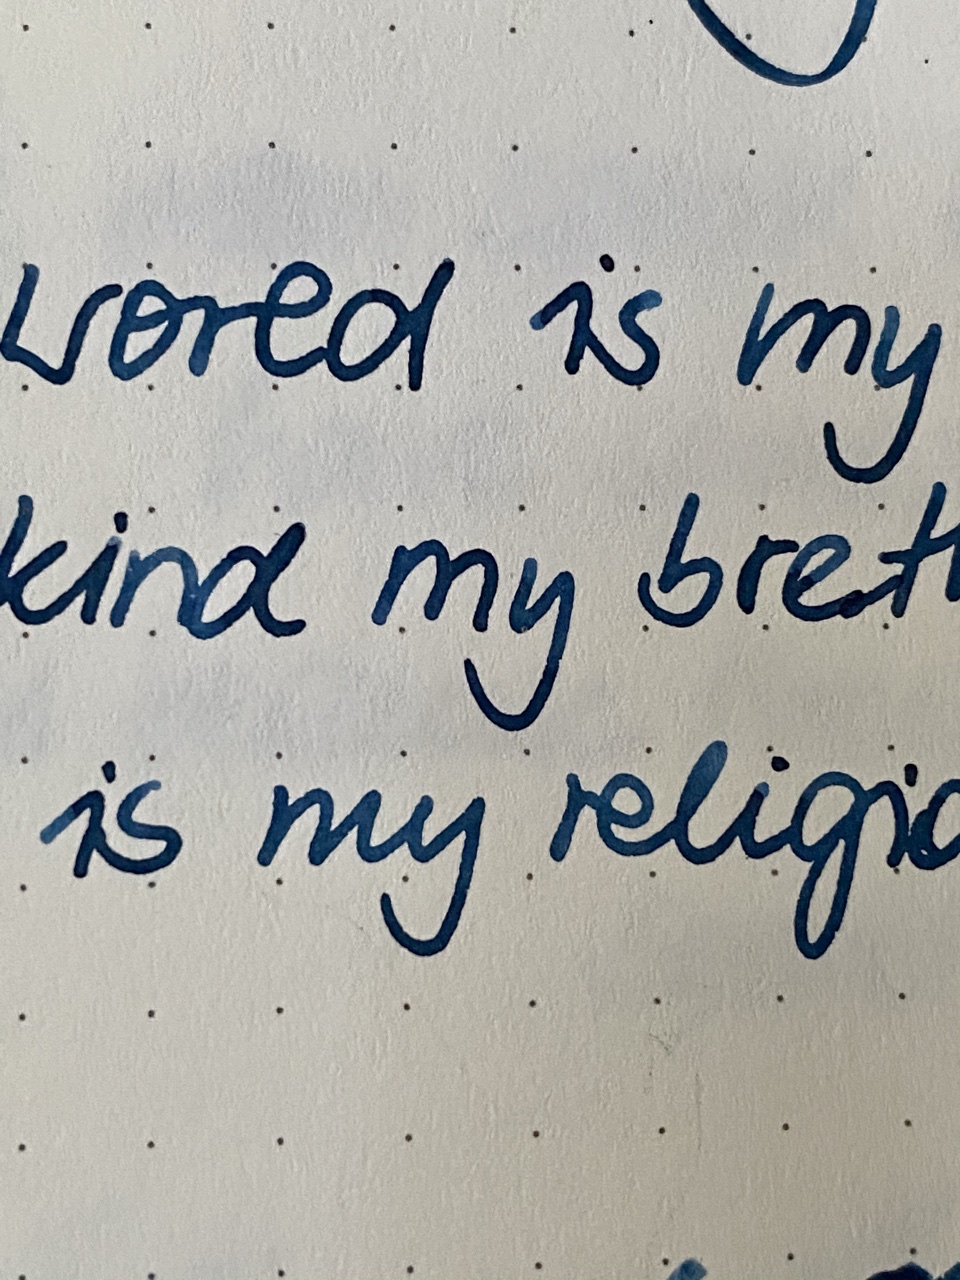 world is my
kind my breth
is my religio